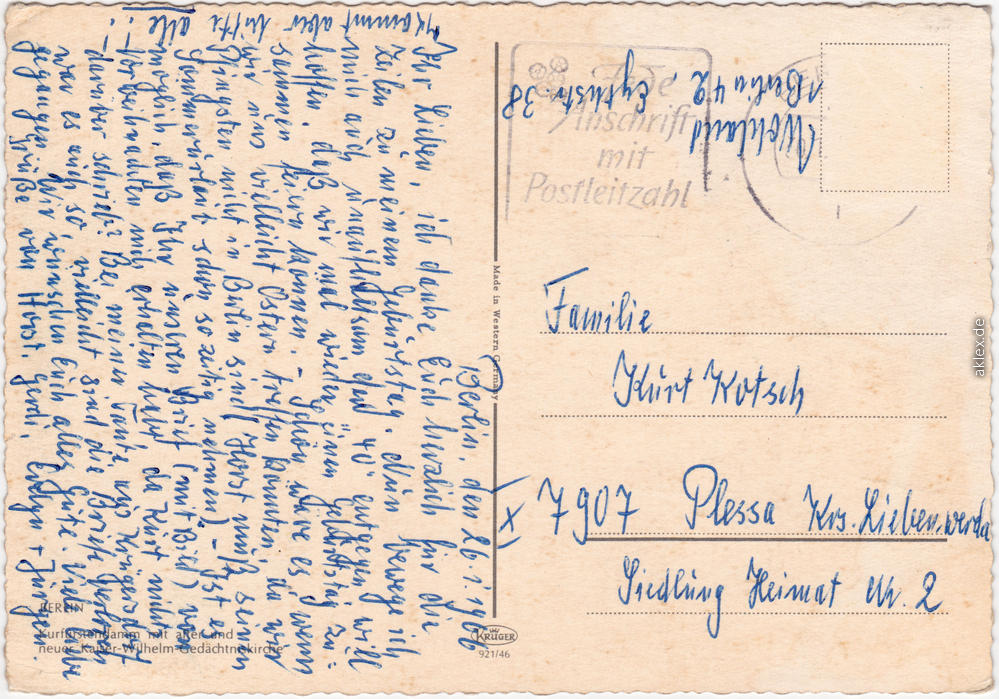 Berlin, den 26.1.1966
Ihr Lieben, ich danke Euch herzlich für die
Zeilen zu meinem Geburtstag. Nun bewege ich
mich auch unaufhaltsam der „40“ entgegen, will
hoffen, daß wir mal wieder einen Geburtstag zu-
sammen feiern können. – Schön wäre es, wenn
wir uns vielleicht Ostern treffen könnten, da wir
Pfingsten nicht in Berlin sind (Horst muß seinen
Sommerurlaub schon so zeitig nehmen) – Ist es
möglich, daß Ihr unseren Brief (mit Bild) vor
Weihnachten nicht erhalten habt, da Kurt nichts
darüber schrieb? Bei meiner Tante aus
war es auch so, vielleicht sind die Briefe verloren
gegangen. Wir wünschen Euch alles Gute. Viele liebe
Grüße von Horst, Gerda, + Jürgen.
kommt aber bitte alle!
BERLIN
Kurfürstendamm mit alter und
neuer Kaiser-Wilhelm-Gedächtniskirche
Made in Western Germany
KRÜGER
921/46
Berlin 42,
38
Anschrift
mit
Postleitzahl
Familie
Kurt Kotsch
X 7907 Plessa Krs. Liebenwerda
Siedlung Heimat Nr. 2
aklex.de